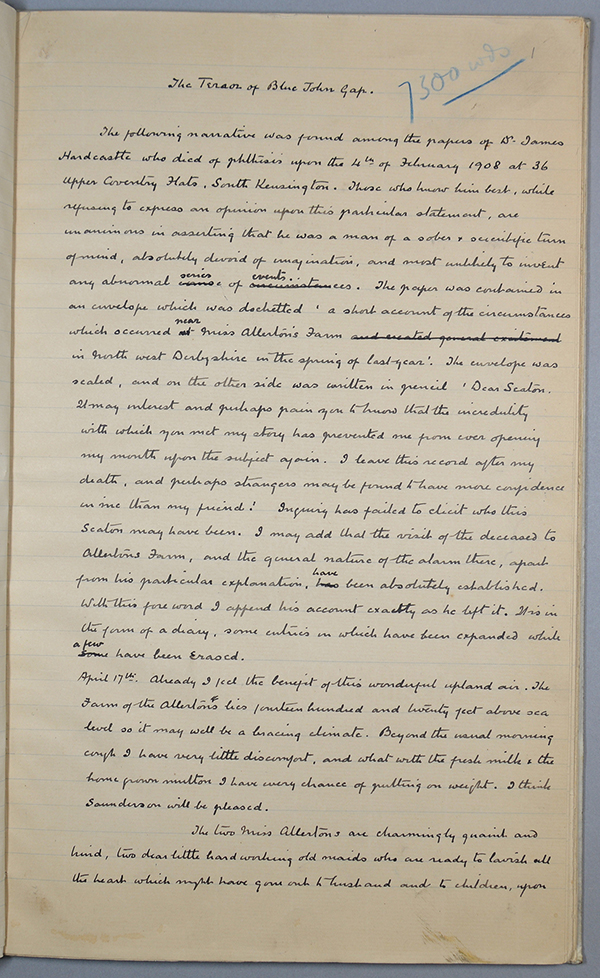 7300 wds
1
The Terror of Blue John Gap.
The following narrative was found among the papers of Dr James
Hardcastle who died of phthisis upon the 4th of February 1908 at 36
Upper Coventry Flats, South Kensington. Those who knew him best, while
refusing to express an opinion upon this particular statement, are
unanimous in asserting that he was a man of a sober & scientific turn
of mind, absolutely devoid of imagination, and most unlikely to invent
any abnormal series of events. The paper was contained in
an envelope which was docketted ' a short account of the circumstances
which occurred near Miss Allerton's Farm and created general excitement
in North west Derbyshire in the spring of last year'. The envelope was
sealed, and on the other side was written in pencil 'Dear Seaton.
It may interest and perhaps pain you to know that the incredulity
with which you met my story has prevented me from ever opening
my mouth upon the subject again. I leave this record after my
death, and perhaps strangers may be found to have more confidence
in me than my friend.' Inquiry has failed to elicit who this
Seaton may have been. I may add that the visit of the deceased to
Allerton's Farm, and the general nature of the alarm there, apart
from his particular explanation, have been absolutely established.
With this fore word I append his account exactly as he left it. It is in
the form of a diary, some entries in which have been expanded while
a few have been Erased.
April 17th. Already I feel the benefit of this wonderful upland air. The
Farm of the Allertons lies fourteen hundred and twenty feet above sea
level so it may well be a bracing climate. Beyond the usual morning
cough I have very little discomfort, and what with the fresh milk & the
home grown mutton I have every chance of putting on weight. I think
Saunderson will be pleased.
The two Miss Allertons are charmingly quaint and
kind, two dear little hard working old maids who are ready to lavish all
the heart which might have gone out to husband and to children, upon